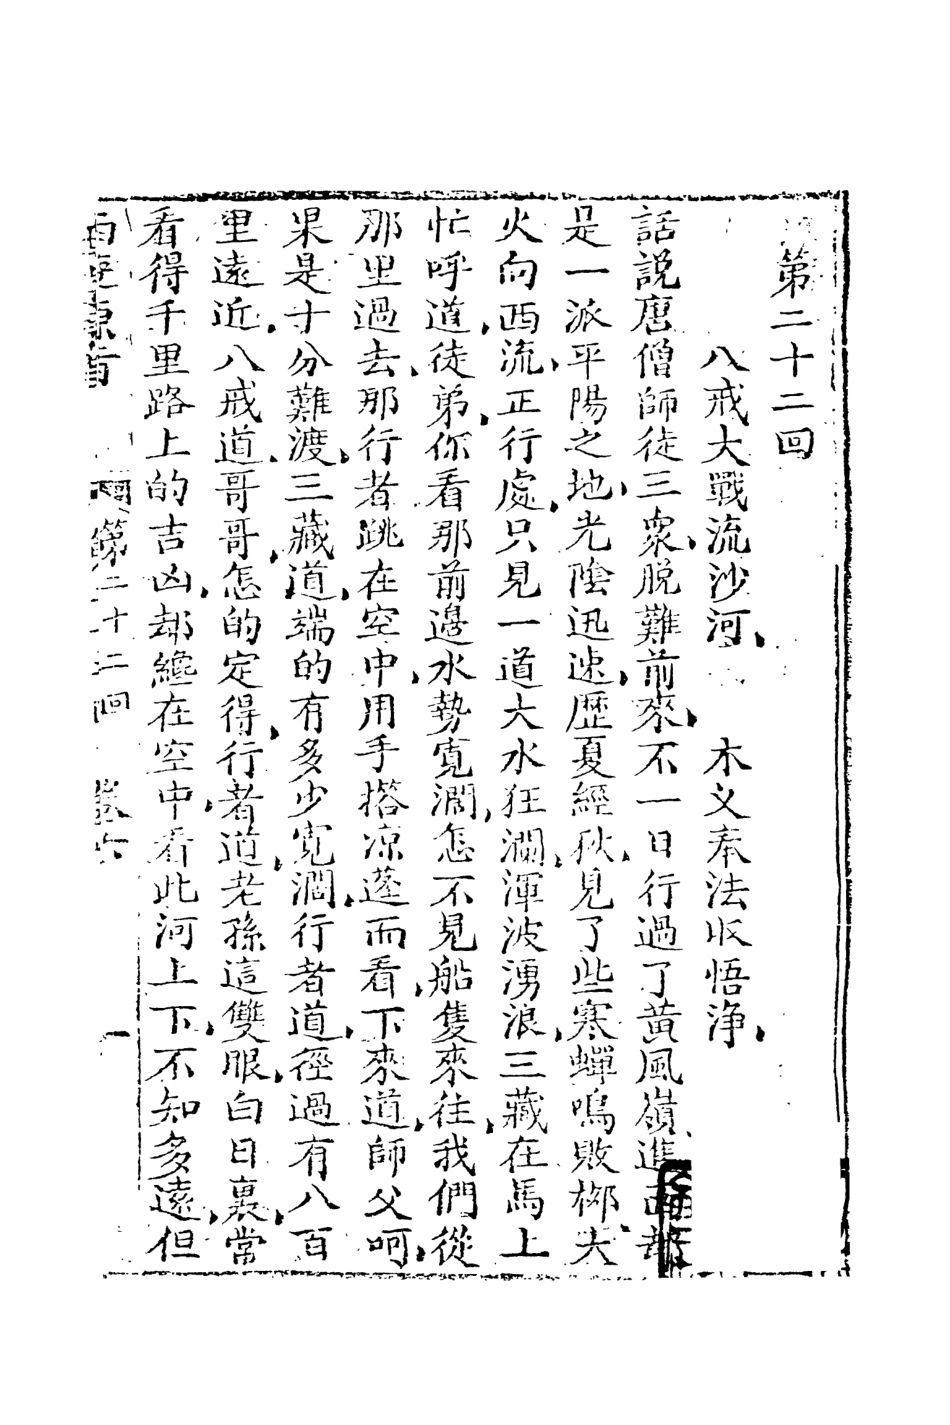 第二十二回
八戒大戰流沙河、　木叉奉法收悟淨、
話說唐僧師徒三衆、脫難前來、不一日行過了黃風嶺、進西却
是一派平陽之地、光陰迅速、歷夏經秋、見了些寒蟬鳴敗柳、大
火向西流、正行處、只見一道大水狂瀾、渾波湧浪、三藏在馬上
忙呼道、徒弟、你看那前邊水勢寬濶、怎不見船隻來往、我們從
那里過去、那行者跳在空中、用手搭凉蓬而看、下來道、師父呵、
果是十分難渡、三藏道、端的有多少寬濶、行者道、徑過有八百
里遠近、八戒道、哥哥、怎的定得、行者道、老孫這雙眼、白日裏、常
看得千里路上的吉凶、却纔在空中、看此河上下、不知多遠、但
第二十二回　卷六　一